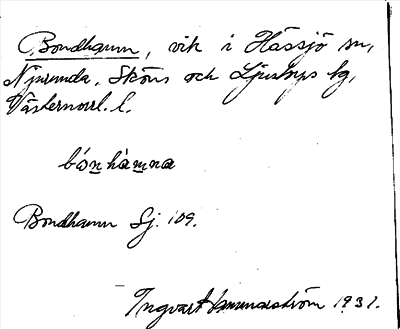 Bondhamn, vik i Hässjö sn,
Njurunda, Sköns och Ljustorps tg,
Västernorrl. l.
bónhàmna
Bondhamn Sj. 109.
Ingvart 1931.